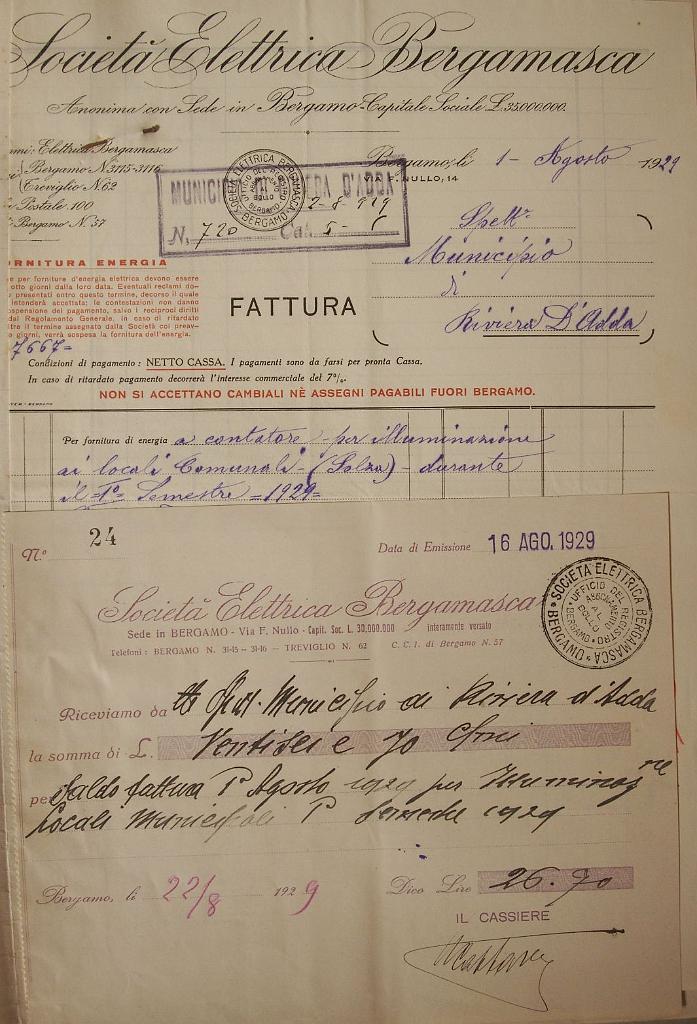 Società Elettrica Bergamasca
Anonima con Sede in Bergamo - Capitale Sociale L. 35.000.000.
mi: Elettrica Bergamasca
Bergamo N. 3115-3116
Treviglio N. 62
Postale 100
Bergamo N. 57
Bergamo, li 1 - Agosto 1929
VIA F. NULLO, 14
MUNICI RA D'ADDA
2-8-929
N. 720 Cat. 5-
SOCIETÀ ELETTRICA BERGAMASCA
BERGAMO
Spett.
Municipio
di
Riviera D'Adda
RNITURA ENERGIA
e per forniture d'energia elettrica devono essere
otto giorni dalla loro data. Eventuali reclami do
presentati entro questo termine, decorso il quale
intenderà accettata; le contestazioni non danno
spensione del pagamento, salvo i reciproci diritti
dal Regolamento Generale. In caso di ritardato
tre il termine assegnato dalla Società coi preav-
giorni, verrà sospesa la fornitura dell'energia.
FATTURA
7667=
Condizioni di pagamento: NETTO CASSA. I pagamenti sono da farsi per pronta Cassa.
In caso di ritardato pagamento decorrerà l'interesse commerciale del 7%.
NON SI ACCETTANO CAMBIALI NÈ ASSEGNI PAGABILI FUORI BERGAMO.
Per fornitura di energia a contatore - per illuminazione
ai locali Comunali - (Solza) - durante
il = 1° Semestre = 1929 =
N.° 24
Data di Emissione 16 AGO. 1929
Società Elettrica Bergamasca
Sede in BERGAMO - Via F. Nullo - Capit. Soc. L. 30.000.000 interamente versato
Telefoni: BERGAMO N. 31-15 - 31-16 - TREVIGLIO N. 62 C. C. I. di Bergamo N. 57
SOCIETÀ ELETTRICA BERGAMASCA
BERGAMO
UFFICIO DEL REGISTRO
AL BOLLO
BERGAMO
Riceviamo da Spett. Municipio di Riviera d'Adda
la somma di L. Ventisei e 70 Cmi
per Saldo fattura 1° Agosto 1929 per Illuminaz.ne
Locali Municipali 1° Semestre 1929
Bergamo, li 22/8 1929
Dico Lire 26.70
IL CASSIERE